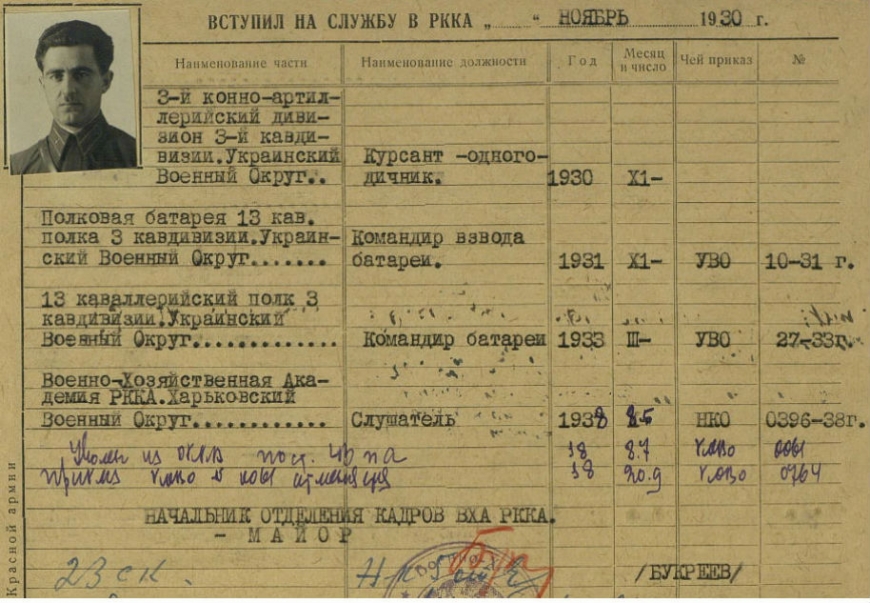 ВСТУПИЛ НА СЛУЖБУ В РККА „ “ НОЯБРЬ 1930 г.
Наименование части Наименование должности Год Месяц и число Чей приказ №
3-й конно-артил-
лерийский диви-
зион 3-й кавди-
визии.Украинский Курсант -одного-
Военный Округ.. дичник. 1930 X1-
Полковая батарея 13 кав.
полка 3 кавдивизии.Украин- Командир взвода
ский Военный Округ....... батареи. 1931 X1- УВО 10-31 г.
13 каваллерийский полк 3
кавдивизии.Украинский
Военный Округ............. Командир батареи 1933 Ш- УВО 27-33г.
Военно-Хозяйственная Ака-
демия РККА.Харьковский
Военный Округ. Слушатель 1938 8.5 НКО 0396-38г.
из 38 8.7 ХВО 0061
ХВО 0061 38 20.9 ХВО 0764
НАЧАЛЬНИК ОТДЕЛЕНИЯ КАДРОВ ВХА РККА.
- МАЙОР
/БУКРЕЕВ/
23 ск.
Красной армии